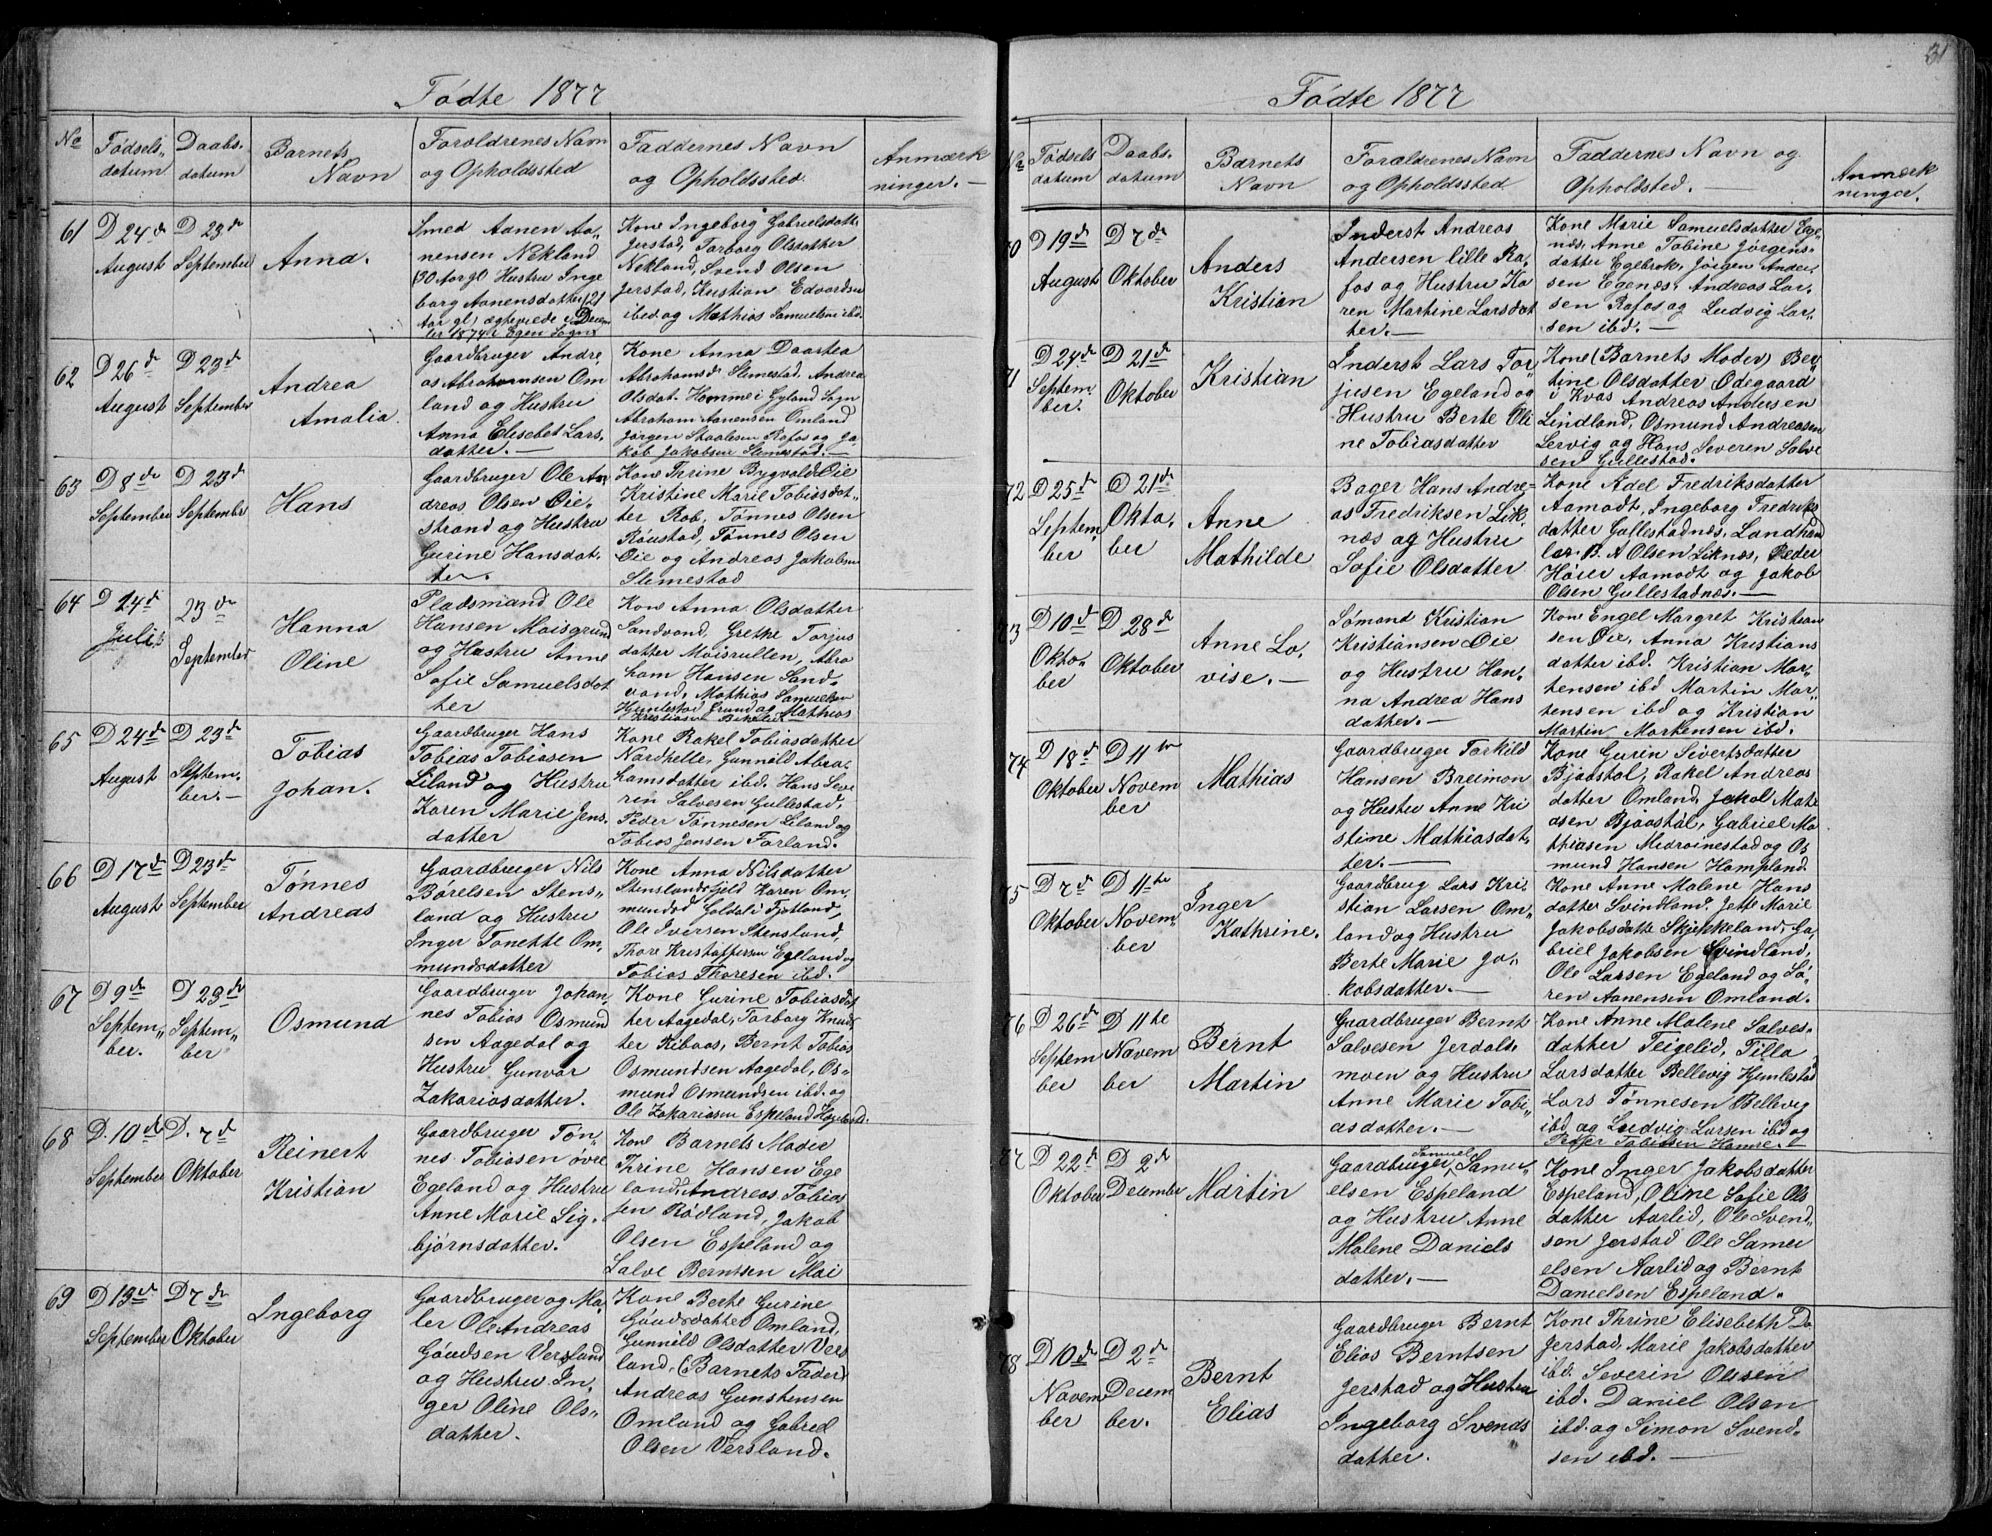 Födte 1877
No
Födsels-
datum
Daabs-
datum
Barnets
Navn
Foreldrenes Navn
og Opholdssted
Faddernes Navn
og Opholdssted
Anmærk
ninger.
61
D 24de
August
D 23de
September
Anna.
Smed Aanen Aa-
nensen Nekland
(30 Aar gl) Hustru Inge
borg Aanensdatter (21
Aar gl) ægteviede i Decem
ber 1874 i Egen Sogn
Kone Ingeborg Gabrielsdatt.
Jerstad, Torborg Olsdatter
Nekland, Svend Olsen
Jerstad, Kristian Edvardsen
ibed og Mathias Samuelsen ibd.
62
D 26de
August
D 23de
September
Andrea
Amalia.
Gaardbruger Andre
as Abrahamsen Om
land og Hustru
Anna Elisebet Lars,
datter. —
Kone Anna Daartea
Abrahamsdr Slimestad. Andrea
Olsdat. Homme i Gyland Sogn
Abraham Aanensen Omland
Jörgen Staalesen Rafos og Ja
kob Jakobsen Slimestad. —
63
D 8de
September
D 23de
September
Hans
Gaardbruger Ole An
dreas Olsen Öie-
strand og Hustru
Gurine Hansdat.
ter.
Kone Thrine Bygvold Öie
Kristine Marie Tobiasdat-
ter Rob, Tönnes Olsen
Röustad, Tönnes Olsen
Öie og Andreas Jakobsen
Slimestad
64
D 24de
Juli
23de
September
Hanna
Oline
Pladsmand Ole
Hansen Moisgrund
og Hustru Anne
Sofie Samuelsdat
ter
Kone Anna Olsdatter
Sandvand, Grethe Torjus
datter Moisrullen, Abra
ham Hansen Sand-
vand, Mathias Samuelsen
Hunlestad Grund og Mathias
Kristiansen
65
D 24de
August
D 23de
Septem-
ber. —
Tobias
Johan.
Gaardbruger Hans
Tobias Tobiasen
Liland og Hustru
Karen Marie Jens.
datter
Kone Rakel Tobiasdatter
Nardhelle, Gunnold Abra
hamsdatter ibd. Hans Seve
rin Salvesen Gullestad,
Peder Tönnesen Liland og
Tobias Jensen Farland.
66
D 17de
August
D 23de
September
Tönnes
Andreas
Gaardbruger Nils
Börelsen Stens-
land og Hustru
Inger Tonette Om-
mundsdatter
Kone Anna Nilsdatter
Stenslandsfjeld Karen Om,
mundsd Goldal i Fjotland,
Ole Iversen Stensland,
Thore Kristoffersen Egeland og
Tobias Thoresen ibd.
67
D 9de
Septem-
ber.
D 23de
Septem-
ber
Osmund
Gaardbruger Johan-
nes Tobias Osmund
sen Aagedal og
Hustru Gunvor
Zakariasdatter.
Kone Gurine Tobiasdat
ter Aagedal, Torborg Knuds
ter Risaas, Bernt Tobias
Osmundsen Aagedal, Os-
mund Osmundsen ibd. og
Ole Zakariasen Espeland Hægeboste.
68
D. 10de
September
D. 7de
Oktober
Reinert
Kristian
Gaardbruger Tön-
nes Tobiasen övre
Egeland og Hustru
Anne Marie Sig.
björnsdatter.
Kone Barnets Moder
Thrine Hansen Ege
land, Andreas Tobias
sen Rödland, Jakob
Olsen Espeland og
Salve Berntsen Moi
69
D 13de
September
D 7de
Oktober
Ingeborg
Gaardbruger og Ma
ler Ole Andreas
Göudsen Versland
og Hustru In,
ger Oline Ols-
datter.
Kone Berte Gurine
Göudsdatter Omland,
Gunnild Olsdatter Vers
land, (Barnets Fader)
Andreas Gunstensen
Omland og Gabriel
Olsen Versland.
31
Födte 1877
No
Födsels
datum
Daabs-
datum
Barnets
Navn
Forældrenes Navn
og Opholdssted
Faddernes Navn og
Opholdsted. —
Anmærk
ninger.
70
D 19de
August
D 7de
Oktober
Anders
Kristian
Inderst Andreas
Andersen lille Ra,
fos og Hustru Ka
ren Martine Larsdat
ter. —
Kone Marie Samuelsdatter Ege
næs, Anne Tobine Jörgens-
datter Egebrok, Jörgen Ander,
sen Egenæs, Andreas Lar-
sen Rafos og Ludvig Lar-
sen ibd. —
71
D 24de
Septem-
ber.
D 21de
Oktober
Kristian
Inderst Lars Tor-
jusen Egeland og
Hustru Berte Oli
ne Tobiasdatter
Kone (Barnets Moder) Ber
tine Olsdatter Ödegaard
i Kvas Andreas Andersen
Lindland, Osmund Andreasen
Lervig og Hans Severen Salve
sen Gullestad.
72
D 25de
Septem-
ber
D 21de
Okto,
ber
Anne
Mathilde
Bager Hans Andre-
as Fredriksen Lik-
næs og Hustru
Sofie Olsdatter
Kone Adel Fredriksdatter
Aamodt, Ingeborg Fredriks
datter Gullestadnæs, Landhand
ler B. A Olsen Liknæs, Peder
Höier Aamodt og Jakob
Olsen Gullestadnæs. —
73
D 10de
Okto-
ber
D 28de
Oktober
Anne Lo,
vise. —
Sömand Kristian
Kristiansen Öie
og Hustru Han-
na Andrea Hans
datter. —
Kone Engel Margret Kristian
sen Öie, Anna Kristians
datter ibd. Kristian Mor-
tensen ibd Martin Mor-
tensen ibd og Kristian
Martin Mortensen ibd.
74
D 18de
Oktober
D 11te
Novem
ber
Mathias
Gaardbruger Torkild
Hansen Breimon
og Hustru Anne Kri
stine Mathiasdat.
ter. —
Kone Gurin Sivertsdatter
Bjaastal, Rakel Andreas
datter Omland, Jakob Mathi
asen Bjaastal, Gabriel Ma
thiasen Midroinestad og Os
mund Hansen Hompland.
75
D 7de
Oktober
D 11te
Novem-
ber
Inger
Kathrine.
Gaardbrug Lars Kri-
stian Larsen Om-
land og Hustru
Berte Marie Ja-
kobsdatter. —
Kone Anne Malene Hans
datter Svindland, Jette Marie
Jakobsdatter Skjekkeland, Ga
briel Jakobsen Svindland,
Ole Larsen Egeland og Sö-
ren Aanensen Omland.
76
D 26de
Septem
ber
D 11te
Novem
ber
Bernt
Martin
Gaardbruger Bernt
Salvesen Jerdals.
moen og Hustru
Anne Marie Tobi-
asdatter. —
Kone Anne Malene Salves-
datter Teigelid, Tilla
Larsdatter Bellevig Hunlestad
Lars Tönnesen Bellevig
ibd og Ludvig Larsen ibd og
Peder Tobiasen Hamre.
77
D 22de
Oktober
D 2de
December
Martin
Samuel
Gaardbruger Samu-
elsen Espeland
og Hustru Anne
Malene Daniels
datter. —
Kone Inger Jakobsdatter
Espeland, Oline Sofie Ols
datter Aarlid, Ole Svend-
sen Jerstad Ole Samu
elsen Aarlid og Bernt
Danielsen Espeland.
78
D 10de
Novem
ber
D 2de
Decem
ber.
Bernt
Elias
Gaardbruger Bernt
Elias Berntsen
Jerstad og Hustru
Ingeborg Svends
datter.
Kone Thrine Elisebeth Da
Jerstad, Marie Jakobsdatter
ibd. Severin Olsen
ibd. Daniel Olsen
ibd. og Simon Svend-
sen ibd. —